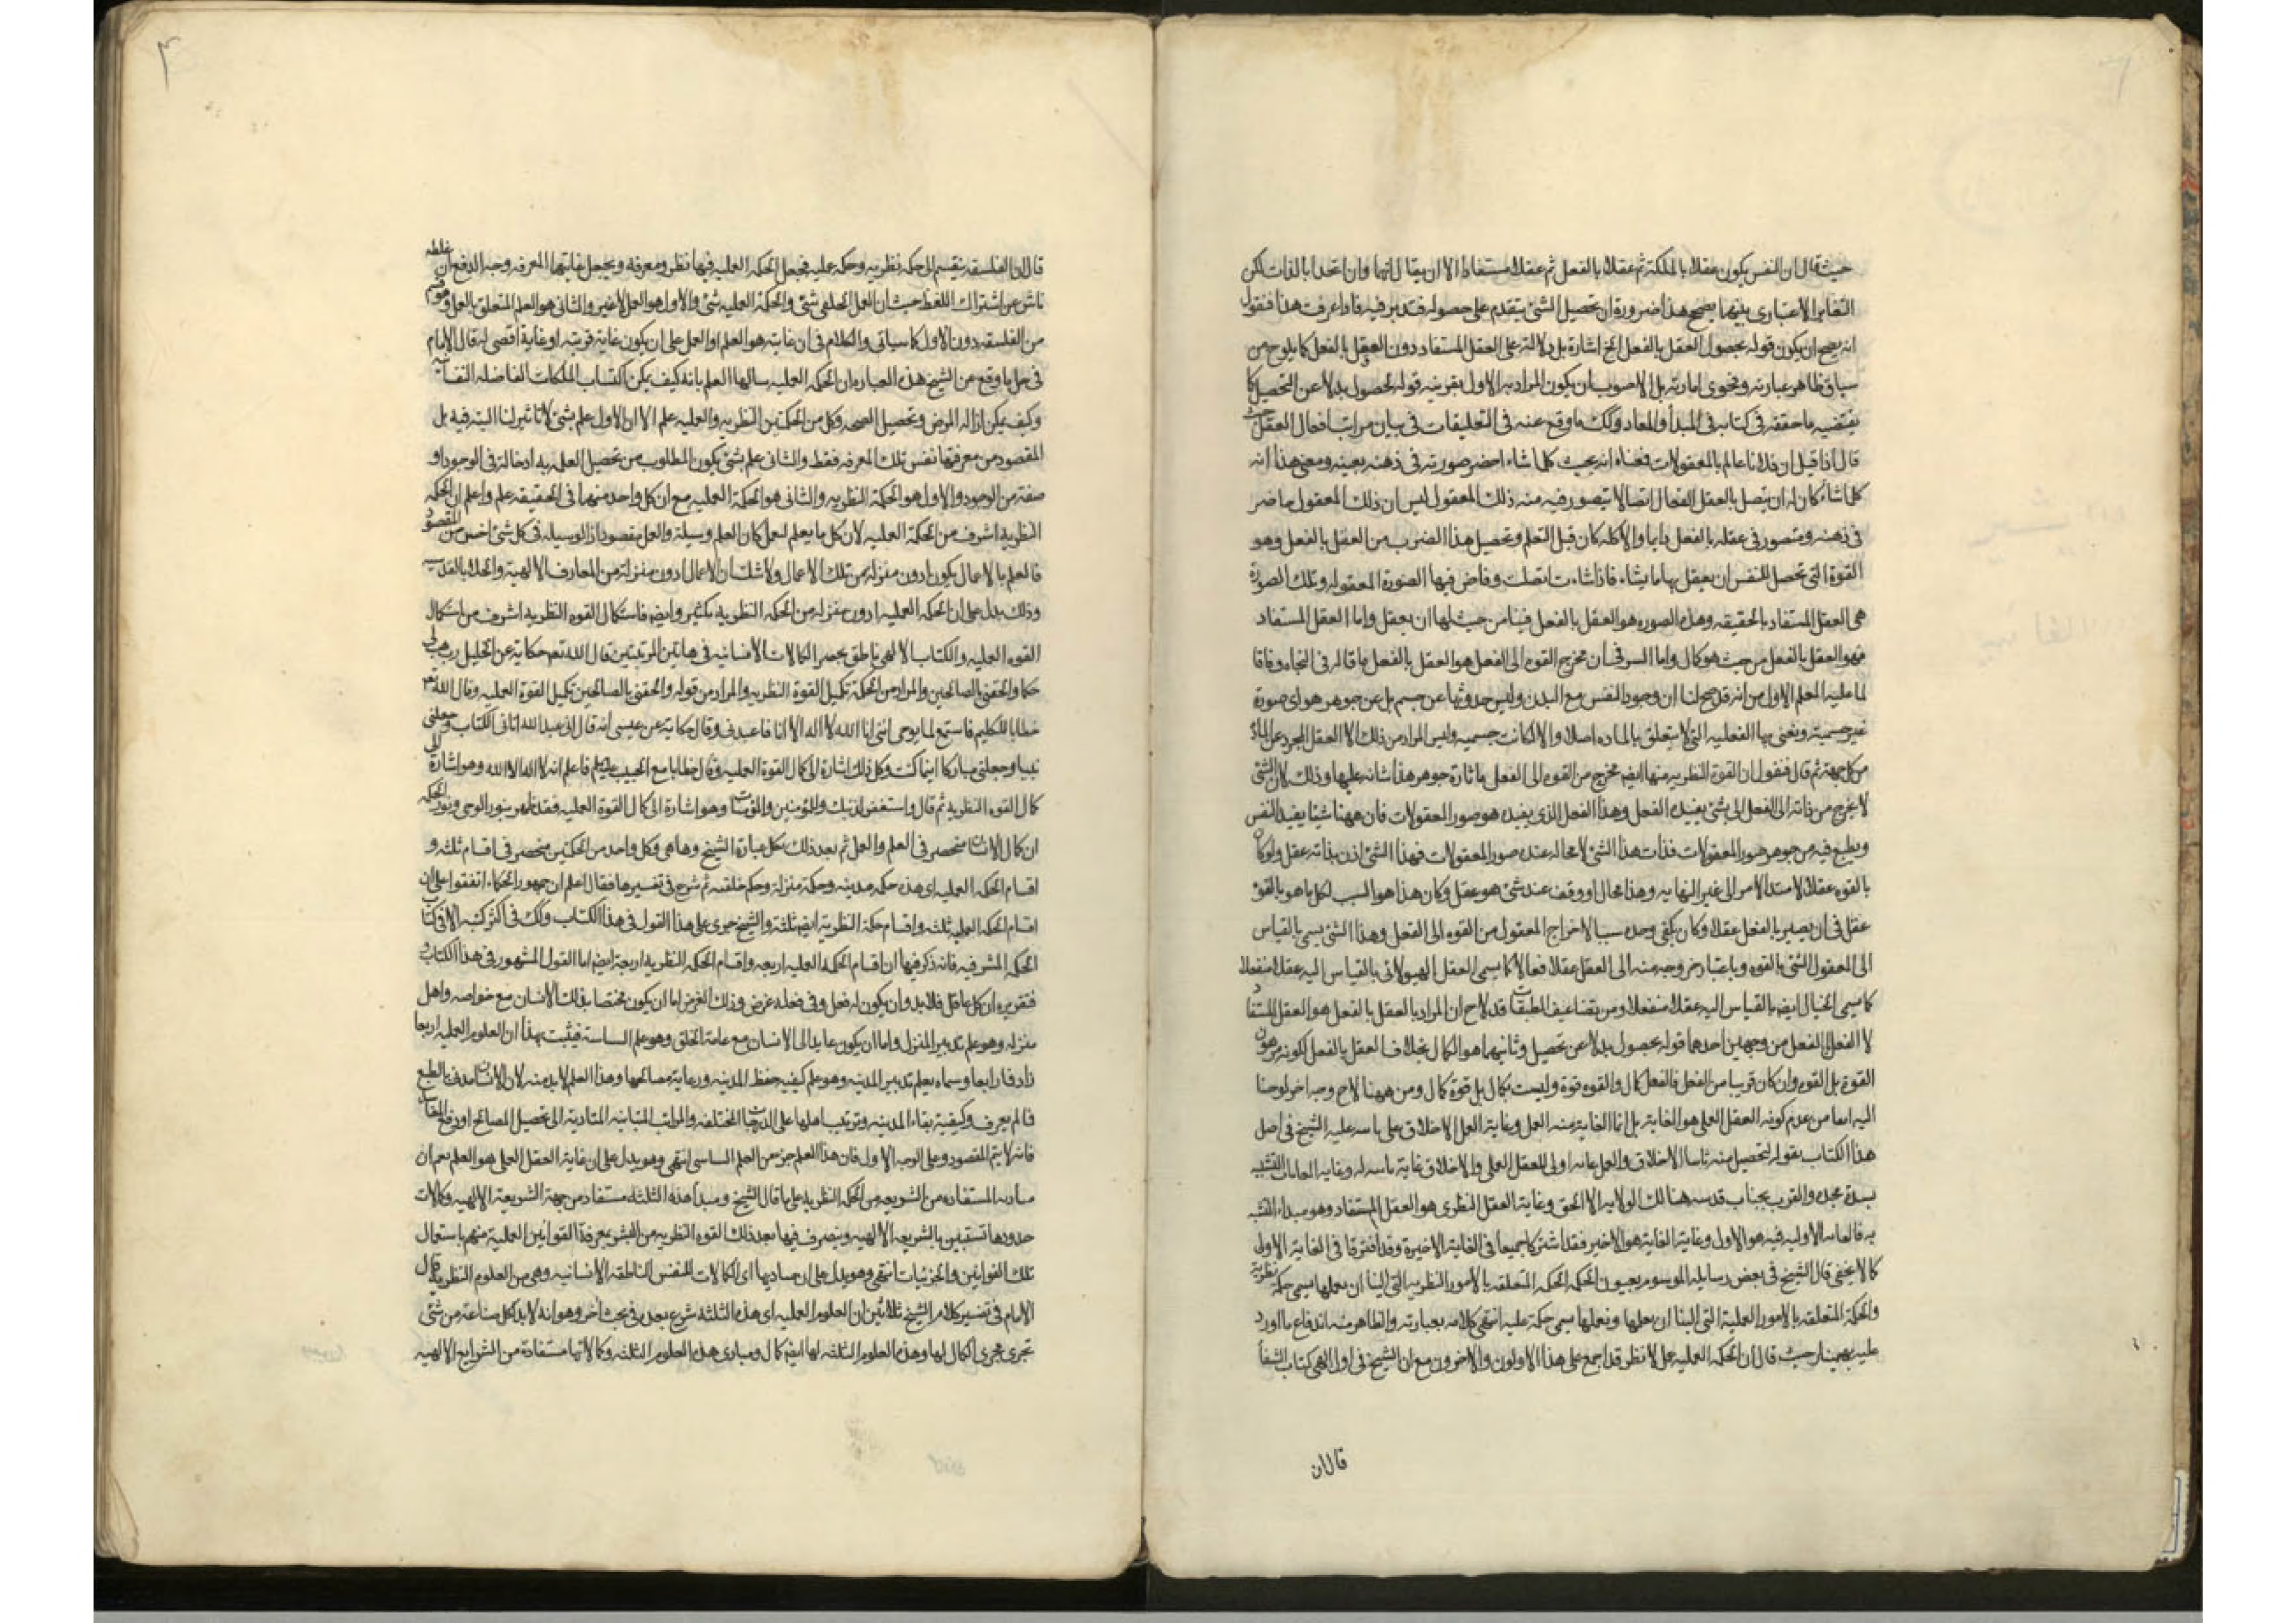 حيث قال ان النفس يكون عقلا بالملكة ثم عقلا بالفعل ثم عقلا مستفادا الا ان يقال انهما وان اتحدا بالذات لكن
التغاير الاعتبارى بينهما يصحح هذا ضرورة ان تحصيل الشئ يتقدم على حصوله فتدبر فيه فاذا عرفت هذا فنقول
انه يصح ان يكون قوله بحصول العقل بالفعل الخ اشارة بل دلالة على العقل المستفاد دون العقل بالفعل كما يلوح من
سياق ظاهر عبارته وفحوى امارته بل الاصوب ان يكون المراد به الاول بقرينه قوله لحصول بدلا عن التحصيل كما
يقتضيه ما حققه فى كتابه فى المبدأ والمعاد وكك ما وقع عنه فى التعليقات فى بيان مراتب افعال العقل حيث
قال اذا قيل ان فلانا عالم بالمعقولات فمعناه انه بحيث كلما شاء احضر صورته فى ذهنه بعينه ومعنى هذا انه
كلما شاء كان له ان يتصل بالعقل الفعال اتصالا يتصور فيه منه ذلك المعقول ليس ان ذلك المعقول حاضر
فى ذهنه ومتصور فى عقله بالفعل دايما ولا كله كان قبل التعلم وتحصيل هذا الضرب من العقل بالفعل وهو
القوة التى تحصل للنفس ان يعقل بها ما يشاء فاذا شاءت اتصلت وفاض فيها الصورة المعقوله وتلك الصورة
هى العقل المستفاد بالحقيقه وهذه الصوره هو العقل بالفعل فينا من حيث لها ان يعقل واما العقل المستفاد
فهو العقل بالفعل من حيث هو كمال واما السر فى ان مخرج القوه الى الفعل هو العقل بالفعل ما قاله فى النجاه وفاقا
لما عليه المعلم الاول من انه قد صح لنا ان وجود النفس مع البدن وليس حدوثها عن جسم بل عن جوهر هو اى صورة
غير جسمية ونعنى بها الفعليه التى لا يتعلق بالماده اصلا والا لكانت جسميه وليس المراد من ذلك الا العقل المجرد عن المادة
من كل جهة ثم قال فنقول ان القوة النظريه منها ايضا مخرج من القوه الى الفعل باثارة جوهر هذا شانه عليها وذلك لان الشئ
لا يخرج من ذاته الى الفعل الى بشئ يفيده الفعل وهذا الفعل الذى يفيده هو صور المعقولات فان ههنا شيئا يفيد النفس
ويطبع فيه من جوهر صور المعقولات فذات هذا الشئ لا محاله عنده صور المعقولات فهذا الشئ اذن بذاته عقل ولو كان
بالقوه عقلا لامتد الامر الى غير النهايه وهذا محال او وقف عند شئ هو عقل وكان هذا هو السبب لكل ما هو بالقوة
عقل فى ان يصير بالفعل عقلا وكان يكفى وحده سببا لاخراج المعقول من القوه الى الفعل وهذا الشئ يسمى بالقياس
الى المعقول الشئ بالقوه وباعتبار خروجه منه الى العقل عقلا فعالا كما يسمى العقل الهيولانى بالقياس اليه عقلا منفعلا
كما سمى الخيال ايضا بالقياس اليه عقلا منفعلا ومن تضاعيف الطبقات قد لاح ان المراد بالعقل بالفعل هو العقل المستفاد
لا الفعل بالفعل من وجهين احدهما قوله بحصول بدلا عن تحصيل وثانيهما هو الكمال بخلاف العقل بالفعل لكونه مرهون
القوة بل القوه وان كان قريبا من الفعل فالفعل كمال والقوه قوة وليست بكمال بل قوة كمال ومن ههنا لاح وجه اخر لوحنا
اليه ايضا من عدم كونه العقل العلى هو الغاية بل انما الغاية منه العمل وغاية العمل الاخلاق على ما سه عليه الشيخ فى اصل
هذا الكتاب بقوله لتحصيل منه ثانيا الاخلاق والعمل غايه اولى للعقل العملى والاخلاق غاية ثانيه له وغايه الغايات التشبه
بسدة مجده والقرب بجناب قدسه هنالك الولايه لله الحق وغاية العقل النظرى هو العقل المستفاد وهو مبداء التشبه
به فالغايه الاوليه فيه هو الاول وغاية الغاية هو الاخير فقد اشتركا جميعا فى الغاية الاخيرة وقد افترقا فى الغاية الاولى
كما لا يخفى قال الشيخ فى بعض رسايله الموسوم بعيون الحكمه الحكمه المتعلقه بالامور النظريه التى الينا ان نعلمها يسمى حكمة نظرية
والحكمة المتعلقه بالامور العملية التى الينا ان نعلمها ونعملها يسمى حكمة عملية انتهى كلامه بعبارته والظاهر منه اندفاع ما اورد
عليه بهمنيار حيث قال ان الحكمه العمليه عمل لا نظر قد اجمع على هذا الاولون والاخرون مع ان الشيخ فى اول الهى كتاب الشفأ
قال ان
٣
قال ان الفلسفه تنقسم الى حكمه نظريه وحكمه عمليه فجعل الحكمه العمليه فيها نظر ومعرفه ويجعل غايتها المعرفه وجه الدفع ان غلطه
ناش عن اشتراك اللفظ حيث ان العمل الخلقى شئ والحكمة العمليه شئ والاول هو العمل لا غير والثانى هو العلم المتعلق بالعمل وهو قسم
من الفلسفه دون الاول كما سياتى والكلام فى ان غايته هو العلم او العمل على ان يكون غاية قريبه او غاية اقصى له قال الامام
فى حل ما وقع من الشيخ هذه العباره ان الحكمه العمليه سالها العلم بانه كيف يمكن اكتساب الملكات الفاضله النفسانيه
وكيف يمكن ازاله المرض وتحصيل الصحه وكل من الحكمتين النظريه والعمليه علم الا ان الاول علم بشئ لا تاثير لنا البته فيه بل
المقصود من معرفتها نفس تلك المعرفه فقط والثانى علم بشئ يكون المطلوب من تحصيل العلم به ادخاله فى الوجود او
صفة من الوجود والاول هو الحكمة النظريه والثانى هو الحكمة العمليه مع ان كل واحد منهما فى الحقيقه علم واعلم ان الحكمه
النظريه اشرف من الحكمة العمليه لان كل ما يعلم لعمل كان العلم وسيلة والعمل مقصود اذ الوسيله فى كل شئ اخس من المقصود
فالعلم بالاعمال يكون ادون منزله من تلك الاعمال ولا شك ان الاعمال ادون منزلة من المعارف الالهية والجلايا القدسيه
وذلك يدل على ان الحكمه العمليه ادون منزله من الحكمه النظريه بكثير وايضا فاستكمال القوه النظريه اشرف من استكمال
القوه العمليه والكتاب الالهى ناطق بحصر الكمالات الانسانيه فى هاتين المرتبتين قال الله تعه حكاية عن الخليل رب هب لى
حكما والحقنى بالصالحين والمراد من الحكمة تكميل القوة النظريه والمراد من قوله والحقنى بالصالحين تكميل القوة العمليه وقال الله تعه
خطابا للكليم فاستمع لما يوحى اننى انا الله لا اله الا انا فاعبدنى وقال حكاية عن عيسى انه قال انى عبد الله اتانى الكتاب وجعلنى
نبيا وجعلنى مباركا اينما كنت وكل ذلك اشارة الى كمال القوة العمليه وقال خطابا مع الحبيب صلعم فاعلم انه لا اله الا الله وهو اشارة الى
كمال القوه النظريه ثم قال واستغفر لذنبك وللمؤمنين والمؤمنات وهو اشارة الى كمال القوة العمليه فقد ظهر بنور الوحى ونور الحكمه
ان كمال الانسان منحصر فى العلم والعمل ثم بعد ذلك نكل عبارة الشيخ وها هى وكل واحد من الحكمتين منحصر فى اقسام ثلثه و
اقسام الحكمه العمليه اى هذه حكمه مدينه وحكمة منزلة وحكم خلقيه ثم شرح فى تفسيرها فقال اعلم ان جمهور الحكماء اتفقوا على ان
اقسام الحكمه العمليه ثلثه واقسام حكمة النظريه ايضا ثلثة والشيخ جرى على هذا القول فى هذا الكتاب وكك فى اكثر كتبه الا فى كتاب
الحكمه المشرقيه فانه ذكر فيها ان اقسام الحكمه العمليه اربعه واقسام الحكمه النظريه اربعة ايضا اما القول المشهور فى هذا الكتاب و
فتقريره ان كل عاقل فلا بد وان يكون له فعل وفى فعله غرض وذلك الغرض اما ان يكون مختصا بذلك الانسان مع خواصه واهل
منزله وهو علم تدبير المنزل واما ان يكون عايدا الى الانسان مع عامة الخلق وهو علم السياسة فيثبت بهذا ان العلوم العمليه اربعا
زاد فيها رابعا وسماه بعلم تدبير المدينه وهو علم كيفيه حفظ المدينه ورعاية مصالحها وهذا العلم لا بد منه لان الانسان مدنى بالطبع
فما لم يعرف وكيفية بقاء المدينه وترتيب اهلها على الدرجات المختلفه والمراتب المتباينه المتادية الى تحصيل المصالح او رفع المفاسد
فانه لا يتم المقصود وعلى الوجه الاول فان هذا العلم جزء من العلم السياسى انتهى وهو يدل على ان غاية العقل العملى هو العلم نعم ان
مباديه المستفاده من الشريعه من الحكمه النظريه على ما قال الشيخ ومبدأ هذه الثلثة مستفاد من جهة الشريعة الالهيه وكمالات
حدودها تستبين بالشريعه الالهيه ويتصرف فيها بعد ذلك القوه النظريه من البشر بمعرفة القوانين العملية منهم باستعمال
تلك القوانين والجزئيات انتهى وهو يدل على ان مباديها اى الكمالات للنفس الناطقه الانسانيه وهى من العلوم النظريه قال
الامام فى تفسير كلام الشيخ ثلا بين ان العلوم العمليه اى هذه الثلثه شرع بعده فى بحث اخر وهو انه لا بد لكل صناعة من شئ
تجرى مجرى الكمال لها وهذه العلوم الثلثه لها ايضا كمال ومبادى هذه العلوم الثلثه وكمالاتها مستفادة من الشرايع الالهيه